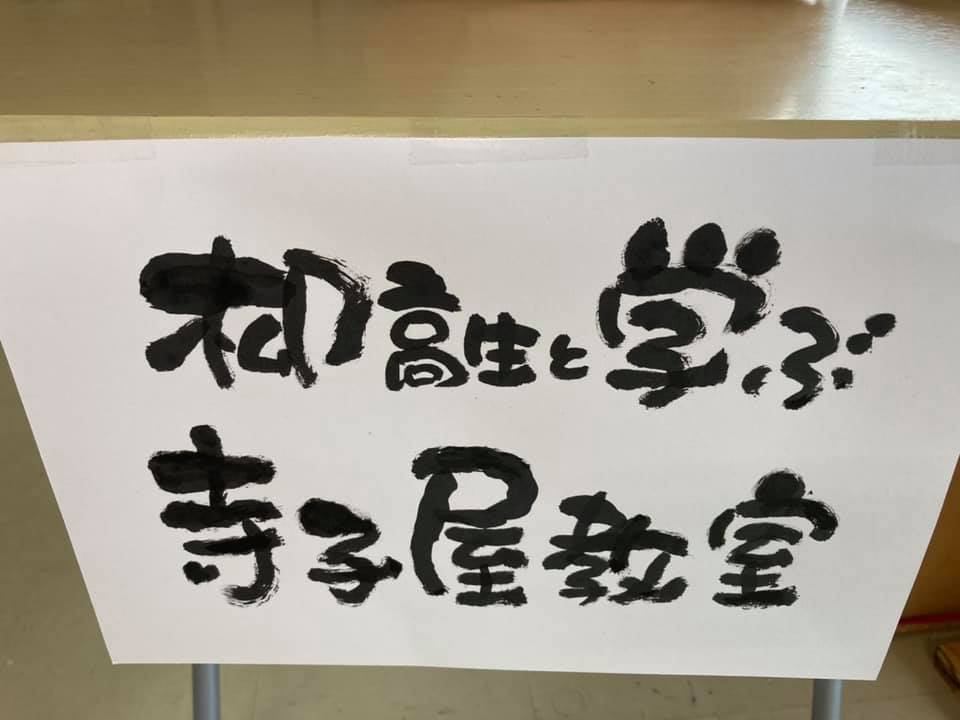 柳高生と学ぶ
寺子屋教室